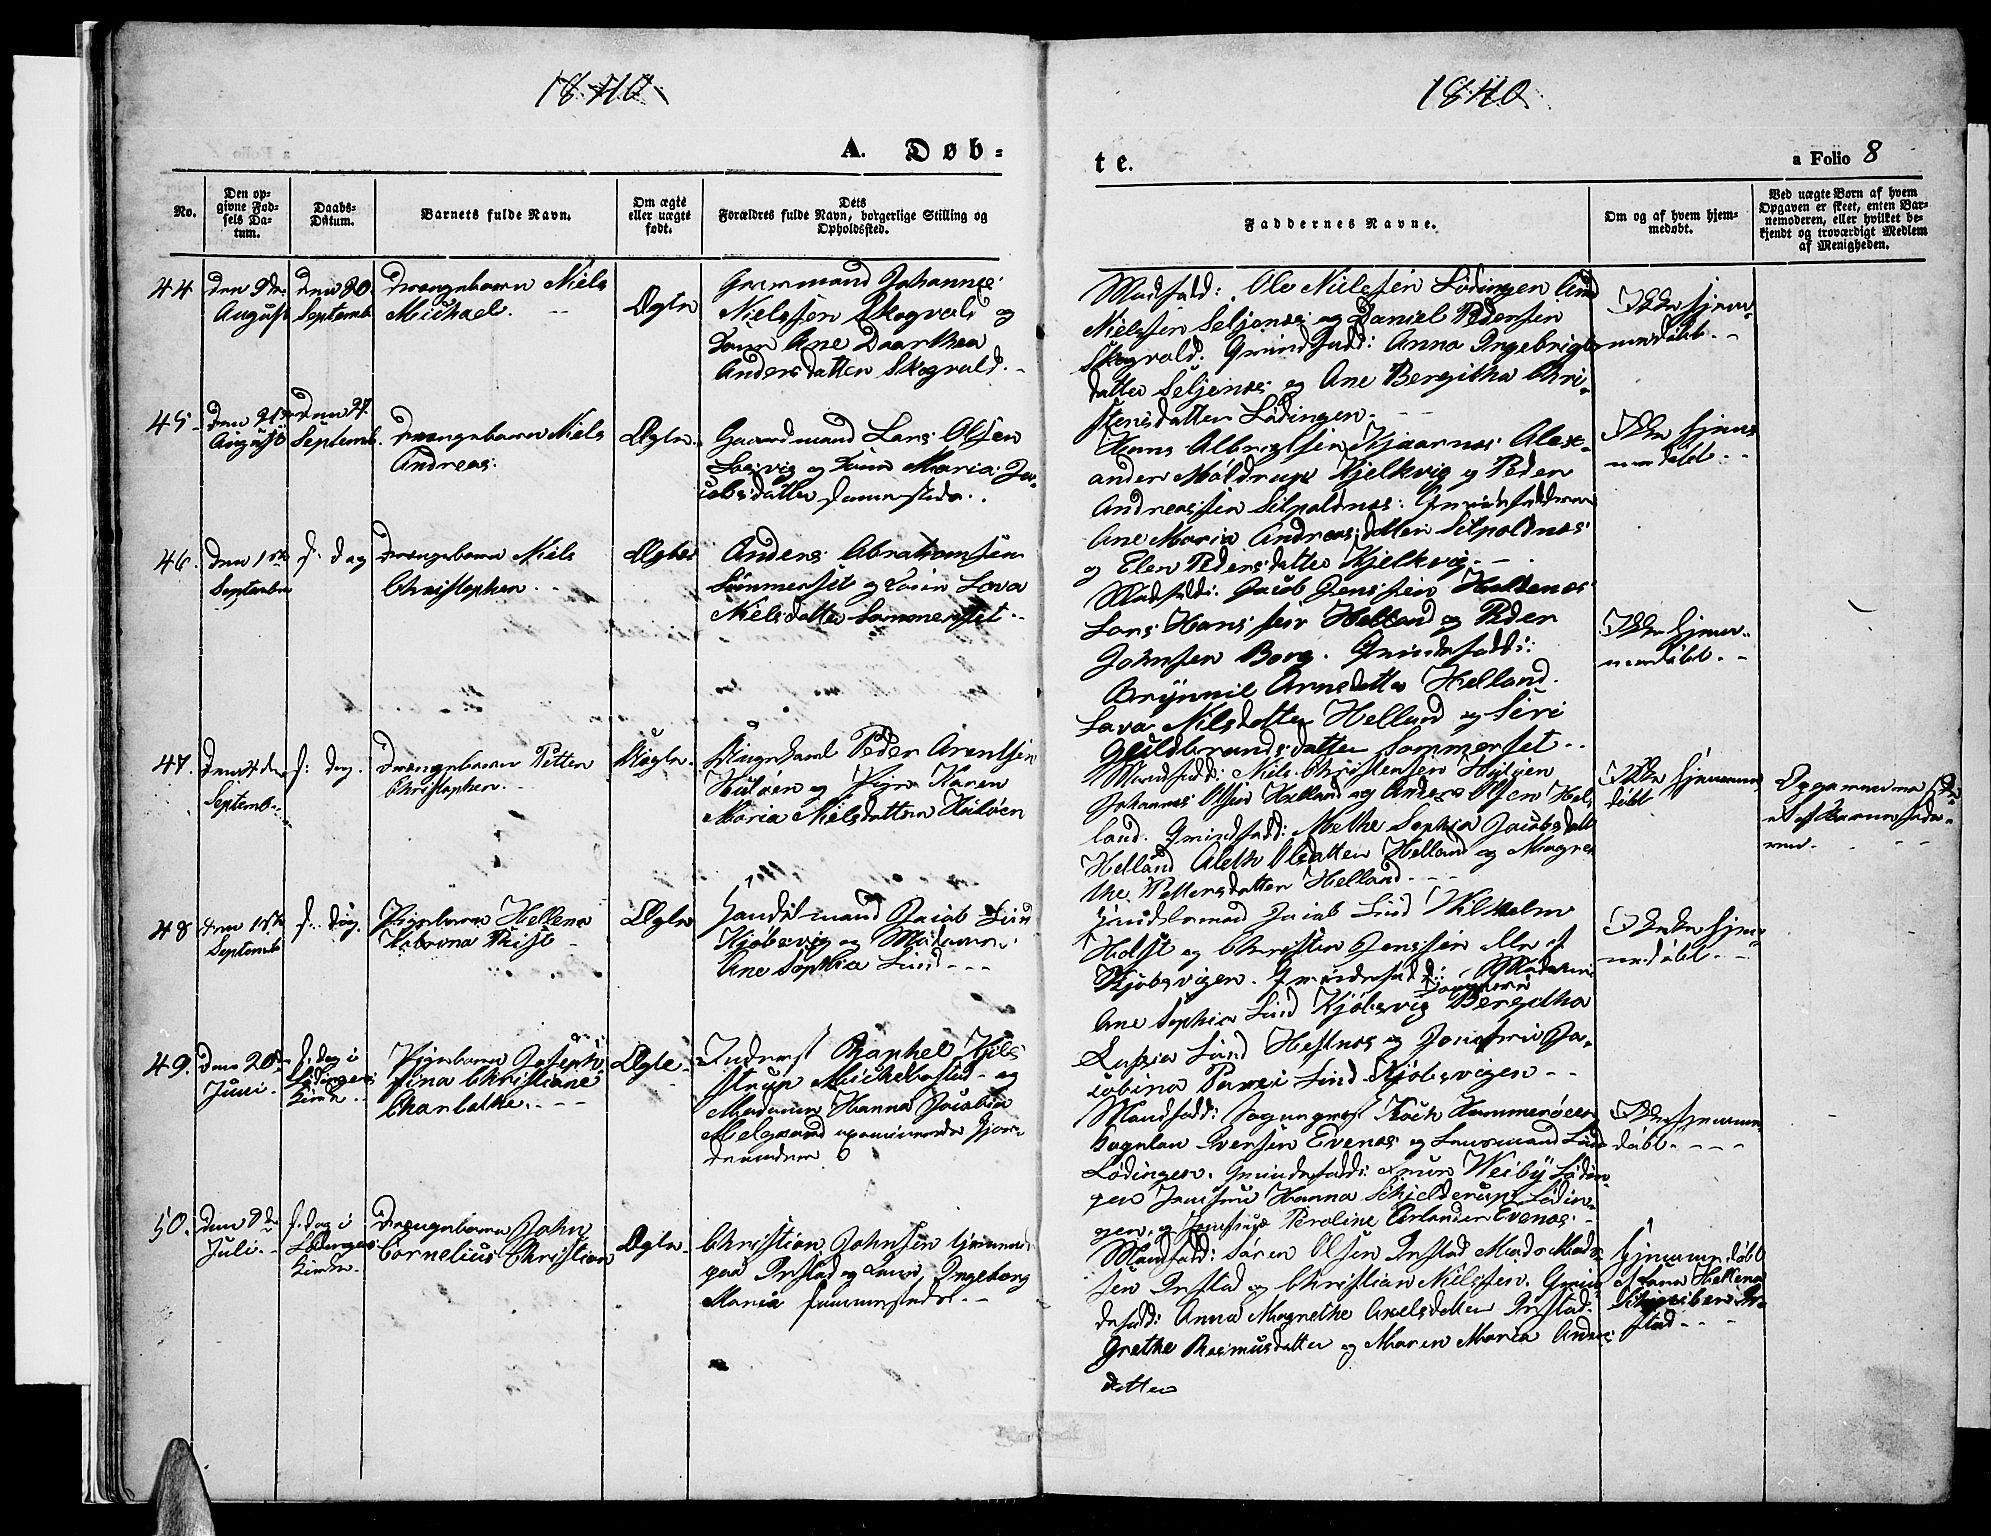 1840
1840
A. Døb=
te.
a Folio 8
No.
Den op-
givne Fød-
sels Da-
tum.
Daabs-
Datum.
Barnets fulde Navn.
Om ægte
eller uægte
født.
Dets
Forældres fulde Navn, borgerlige Stilling og
Opholdsted.
Faddernes Navne.
Om og af hvem hjem-
medøbt.
Ved uægte Børn af hvem
Opgaven er skeet, enten Bar-
nemoderen, eller hvilket be-
kjendt og troværdigt Medlem
af Menigheden.
44
Den 9de
August
Den 20
Septemb.
Drengebarn Niels
Michael.
Ægte
Gaarmand Johannes
Nielssen Skogvold og
Kone Ane Daarthea
Andersdatter Skogvold.
Mandfadd: Ole Nielssen Lødingen
Nielssen Seljenes og Daniel Pedersen
Skogvold. Qvindfadd: Anna Ingebrigts
datter Seljenes og Ane Bergitha Chri-
stensdatter Lødingen.
Ikke hjem-
medøbt.
45
Den 21
August
Den 27.
Septemb.
Drengebarn Niels
Andreas.
Ægte.
Gaardmand Lars Olsen
og Kone Maria Ja-
cobsdatter sammesteds.
Hans Albrigtsen Kjaarnes Alex-
ander Moldrup Kjelkvig og Peder
Andreassen Silpoldnes: Qvindefaddere
Ane Maria Andreasdatter Silpoldnes
og Elen Pedersdatter Kjelkvig.
Ikke hjem
medøbt.
46.
Den 1ste
September
s: Dag
Drengebarn Niels
Christopher.
Ægte
Anders Abrahamsen
Sommerset og Kone Lava
Nielsdatter Sommerset.
Mandfadd: Jacob Jenssen
Lars Hanssen Helland og Peder
Johnsen Borg. Qvindefadd:
Arnedatter Helland.
Lava Nilsdatter Helland og Siri
Guldbrandsdatter Sommerset.
Ikke hjem-
medøbt.
47.
Septemb.
s: Dag.
Drengebarn Petter
Christopher.
Uægte.
Ungkarl Peder Arentsen
Huløen og Pige Karen
Maria Nielsdatter Huløen
Mandfadd: Niels Christensen
Johannes Olsen Helland og Anders Olsen Hel-
land. Qvindfadd: Methe Sophia Jacobsdatt
Helland Aleth Olsdatter Helland og Magre
the Pettersdatter Helland.
Ikke hjemme
døbt
Opgaven
af Barnefade-
ren.
48
Septemb
s: Dag.
Pigebarn Hellena
Ægte
Handelsmand Jacob Lund
Kjøbsvig og Madame
Ane Sophia Lund
Handelsmand Jacob Lind Wilhelm
Holst og Christen Jenssen Alle af
Kjøbsvigen. Qvindefadd: Madame
Ane Sophia Lind Kjøbsvig Jomfrue Bergitha
Lind Hestnes og Jomfrue Ja-
cobina Lind Kjøbsvigen
Ikke hjem-
medøbt.
49.
Den 20de
Juni
s. Dag i
Lødingens
Kirke.
Pigebarn Joseph-
fina Christiane
Charlothe.
Ægte
Raphel Kjels
strup Mickelbostad og
Madame Hanna Jacobia
Melgaard examinerede Gjor-
demoder
Mandfadd: Koch Hammerøen
Evensen Evenes og Lensmand Lund
Lødingen. Qvindefadd: Weiby Lødin-
gen Jomfrue Hanna Schjelderup Lødin-
gen. og Jomfrue Peroline Erlander Evenes.
Ikke hjemme-
døbt.
50.
Juli.
s. Dag i
Lødingens
Kirke.
Drengebarn John
Cornelius Christian
Ægte
Christian Johnsen
paa Instad og Kone Ingeborg
Maria sammesteds.
Mandfadd: Søren Olsen Instad Mads Mads-
sen Instad og Christian Nielssen. Qvin-
defadd: Anna Magrethe Axelsdatter Instad.
Grethe Rasmusdatter og Maren Maria Anders
datter
Hjemmedøbt
af Lava Hellena
In-
stad.